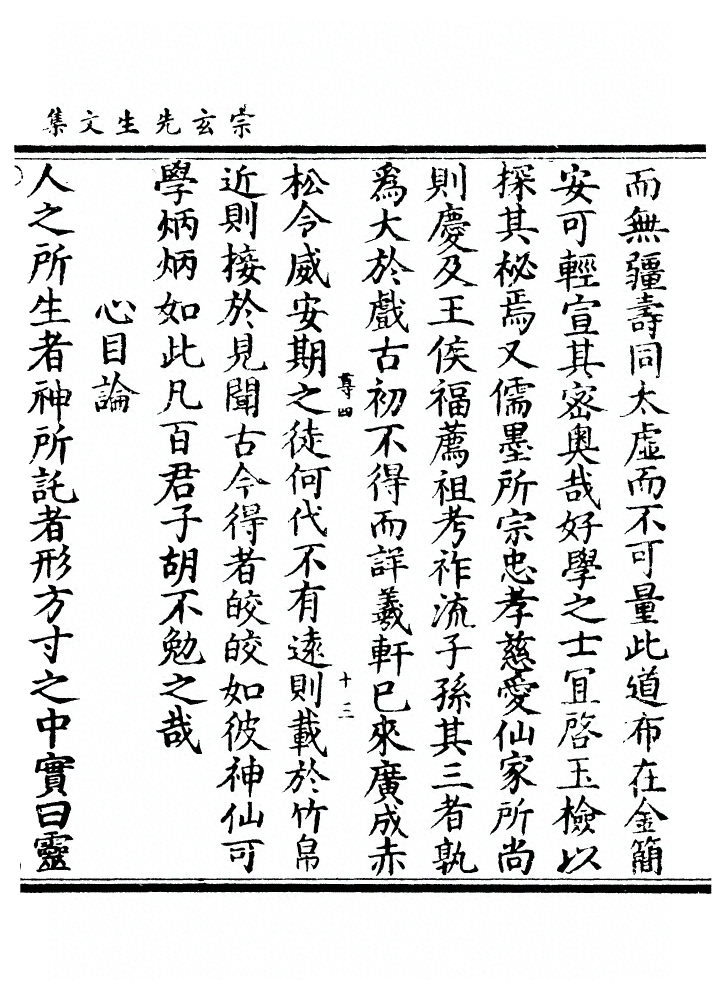 宗玄先生文集
而無疆壽同太虛而不可量此道布在金簡
安可輕宣其密奧哉好學之士冝啓玉檢以
探其秘焉又儒墨所宗忠孝慈愛仙家所尚
則慶及王侯福薦祖考祚流子孫其三者孰
爲大於戲古初不得而詳羲軒已來廣成赤
尊四 十三
松令威安期之徒何代不有遠則載於竹帛
近則接於見聞古今得者皎皎如彼神仙可
學炳炳如此凡百君子胡不勉之哉
心目論
人之所生者神所託者形方寸之中實曰靈